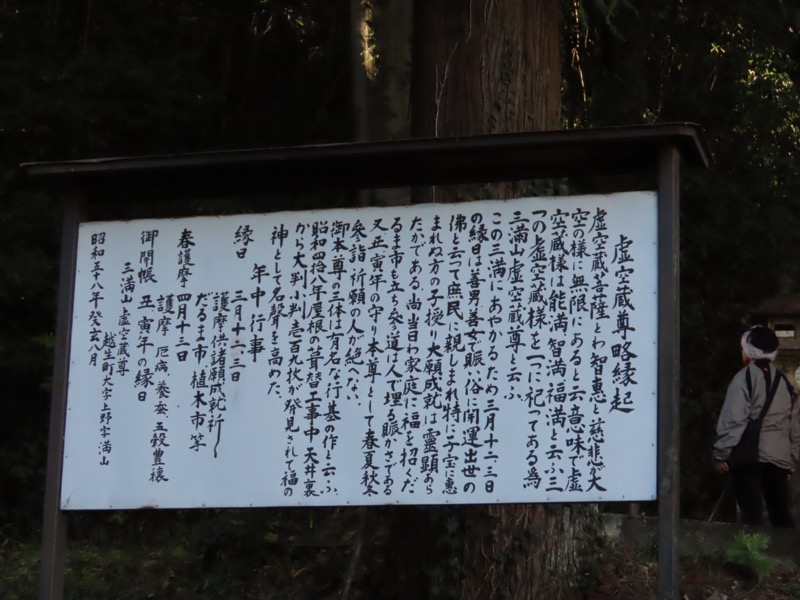 虚空蔵尊略縁起
虚空蔵菩薩とわ智恵と慈悲が大
空の様に無限にあると云意味で虚
空蔵様は能満智満福満と云ふ三
つの虚空蔵様を一つに祀ってある為
三満山虚空蔵尊と云ふ
この三満にあやかるため三月十二、三日
の縁日は善男善女で賑い俗に開運出世の
佛と云って庶民に親しまれ特に子宝に恵
まれぬ方の子授り大願成就は霊顕あら
たかである、尚当日わ家庭に福を招くだ
るま市も立ち参道は人で埋る賑かさである
又丑寅年の守り本尊として春夏秋冬
参詣祈願の人が絶へない、
御本尊の三体は有名な行基の作と云ふ、
昭和四拾八年屋根の葺替工事中天井裏
から大判小判壱百九枚が発見されて福の
神として名聲を高めた、
年中行事
縁日 三月十二、三日
護摩供諸願成就祈〻
だるま市植木市等
春護摩 四月十三日
護摩厄病、養蚕、五穀豊穣
御開帳 丑寅年の縁日
三満山虚空蔵尊
越生町大字上野字満山
昭和五十八年癸亥八月